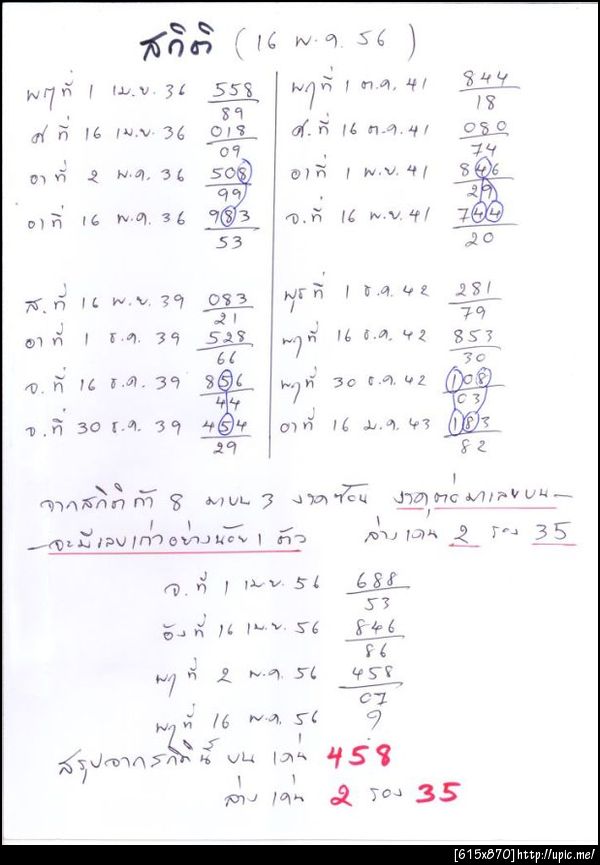 สถิติ (16 พ.ค. 56)
พฤ ที่ 1 เม.ย. 36 558
89
ศ ที่ 16 เม.ย. 36 018
09
อา ที่ 2 พ.ค. 36 508
99
อา ที่ 16 พ.ค. 36 983
53
ส. ที่ 16 พ.ย. 39 083
21
อา ที่ 1 ธ.ค. 39 528
66
จ. ที่ 16 ธ.ค. 39 856
44
จ. ที่ 30 ธ.ค. 39 454
29
พฤ ที่ 1 ต.ค. 41 844
18
ศ. ที่ 16 ต.ค. 41 080
74
อา ที่ 1 พ.ย. 41 846
29
จ. ที่ 16 พ.ย. 41 744
20
พุธ ที่ 1 ธ.ค. 42 281
79
พฤ ที่ 16 ธ.ค. 42 853
30
พฤ ที่ 30 ธ.ค. 42 108
03
อา ที่ 16 ม.ค. 43 183
82
จากสถิติ ถ้า 8 มาบน 3 งวดซ้อน งวดต่อมาเลขบน
จะมีเลขเก่าอย่างน้อย 1 ตัว ล่างเด่น 2 รอง 35
จ. ที่ 1 เม.ย. 56 688
53
อัง ที่ 16 เม.ย. 56 846
86
พฤ ที่ 2 พ.ค. 56 458
07
พฤ ที่ 16 พ.ค. 56 ?
สรุปจากสถิตินี้ บน เด่น 458
ล่าง เด่น 2 รอง 35
[615x870]http://upic.me/